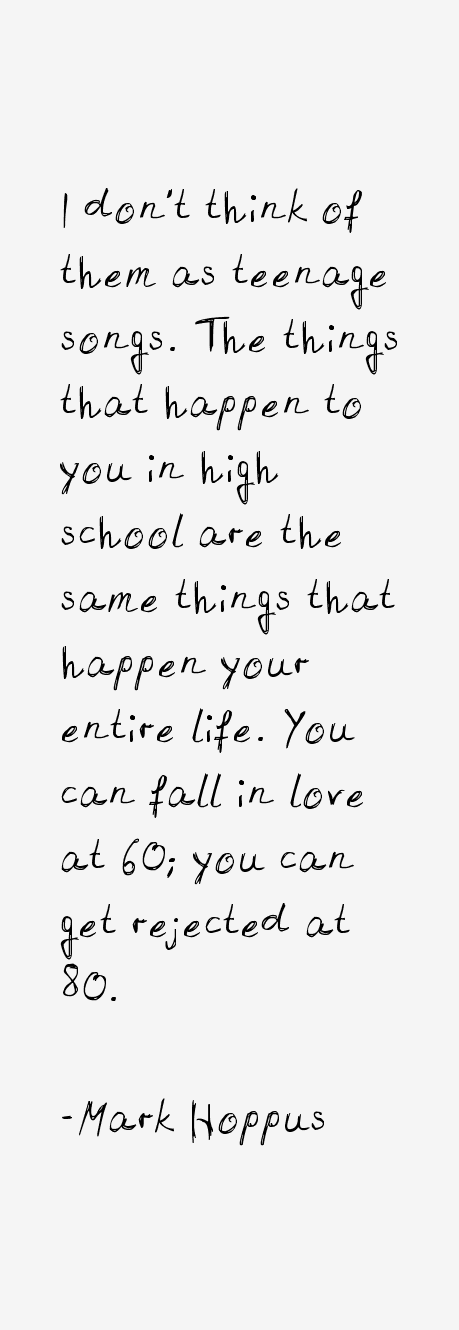 I don't think of
them as teenage
songs. The things
that happen to
you in high
school are the
same things that
happen your
entire life. You
can fall in love
at 60; you can
get rejected at
80.
-Mark Hoppus